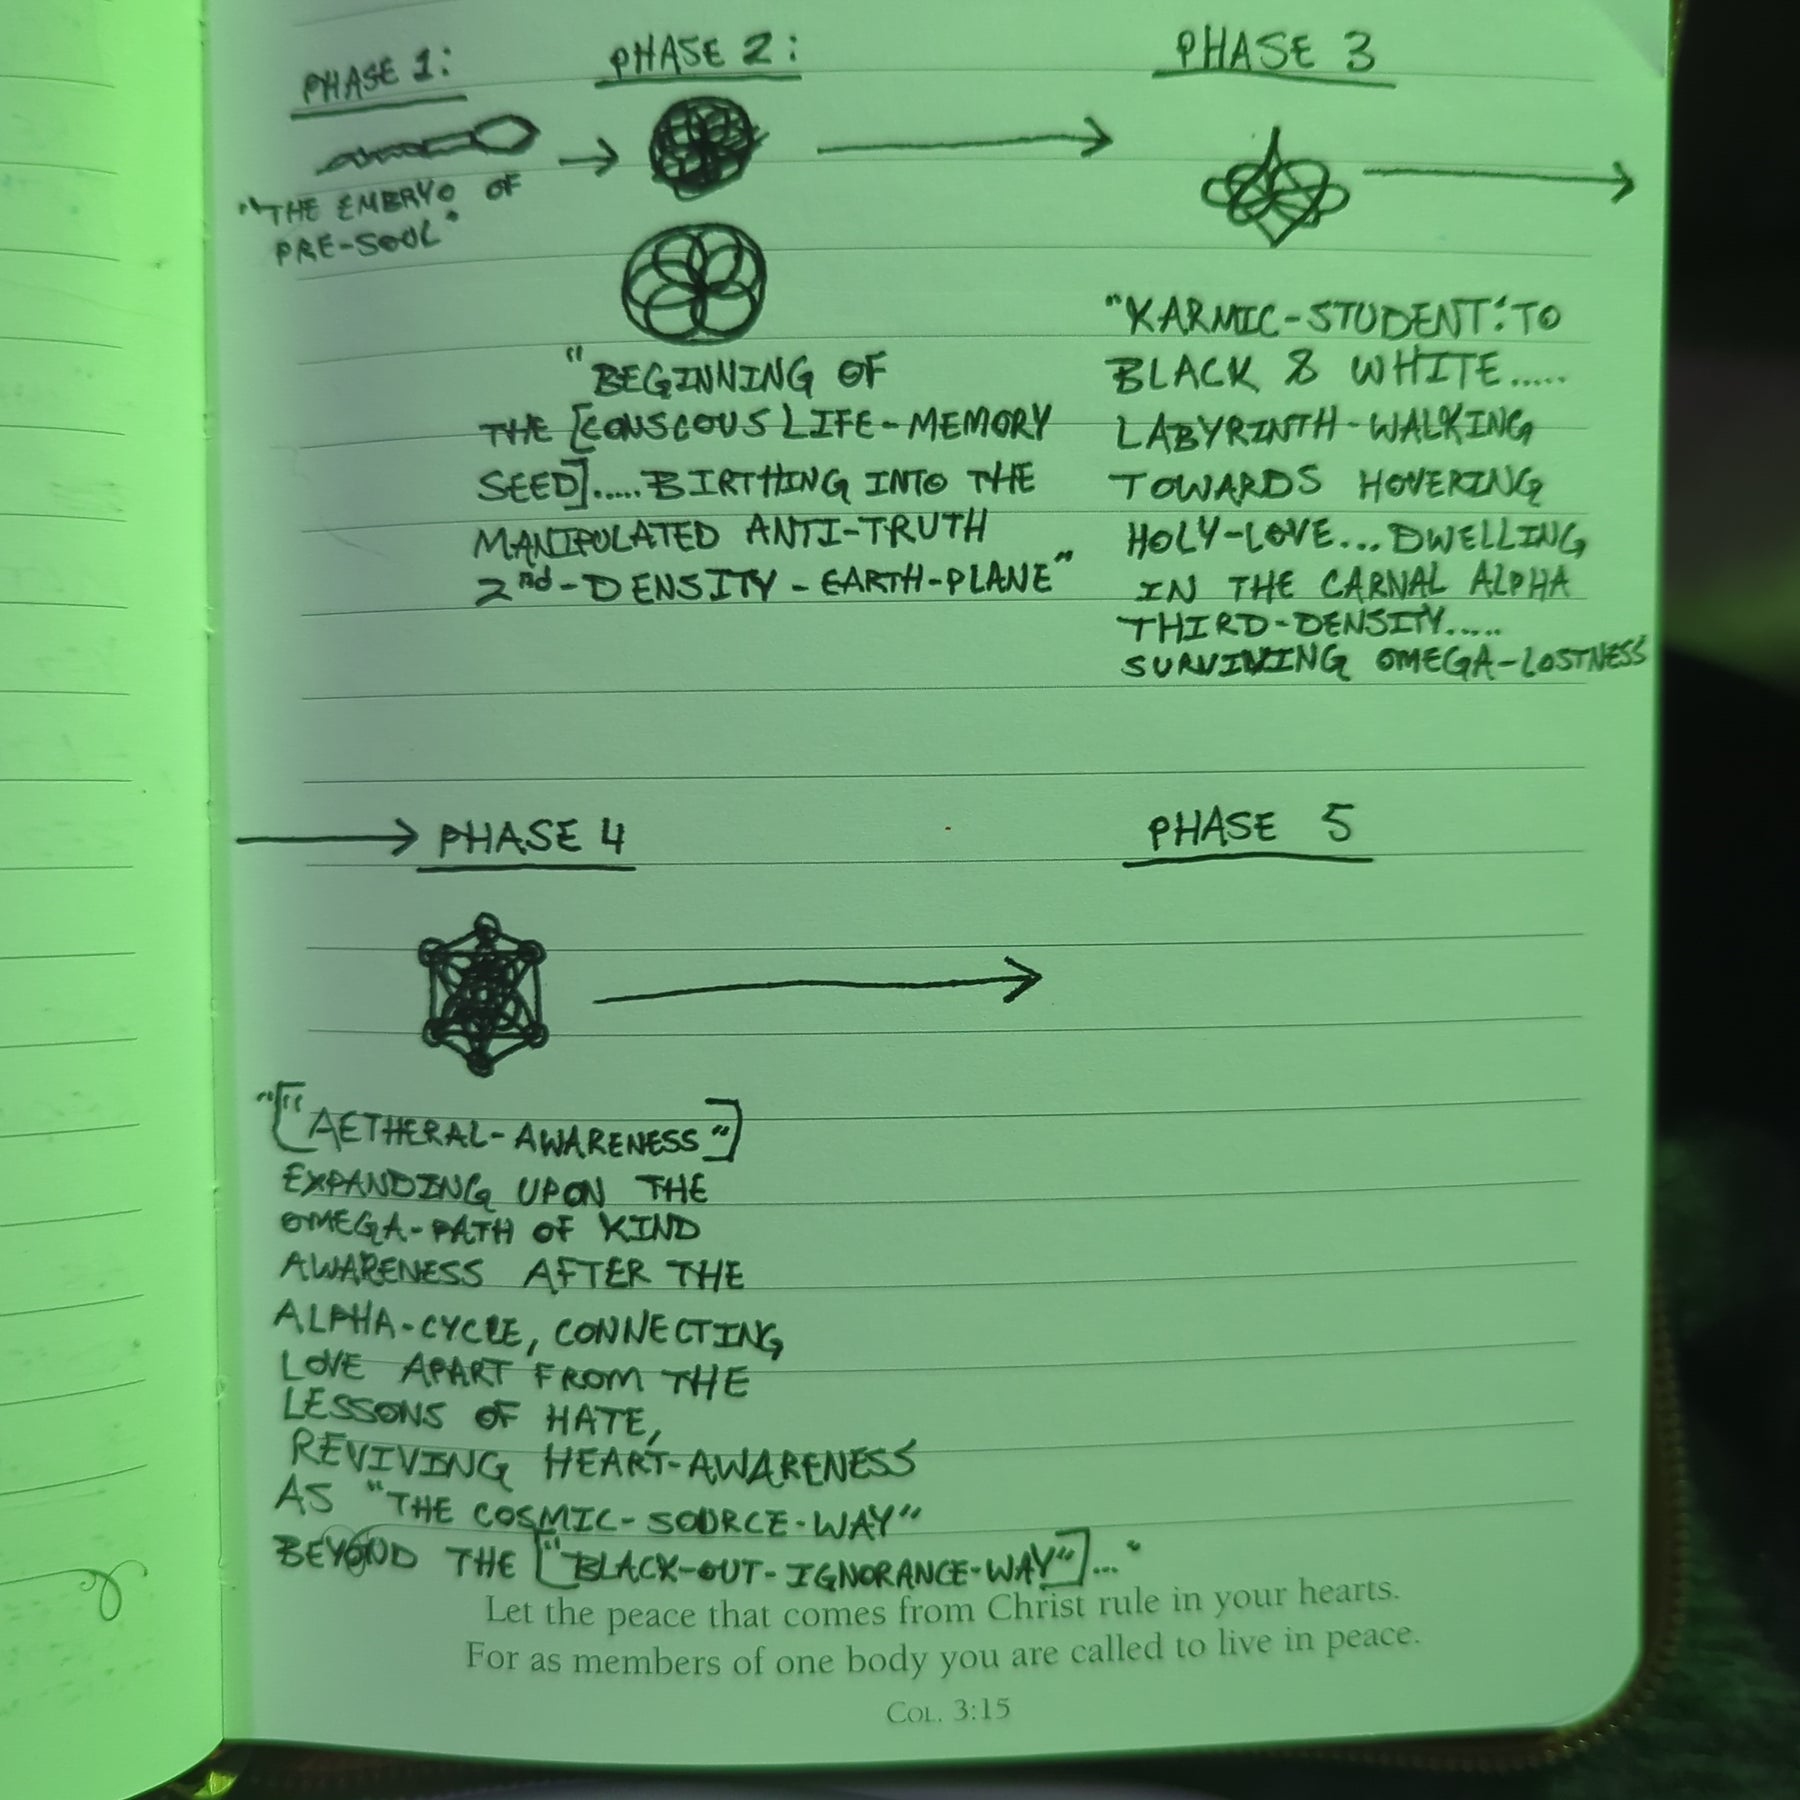 PHASE 1:
"THE EMBRYO OF
PRE-SOUL"
PHASE 2:
"BEGINNING OF
THE [CONSCOUS LIFE-MEMORY
SEED].....BIRTHING INTO THE
MANIPULATED ANTI-TRUTH
2nd-DENSITY-EARTH-PLANE"
PHASE 3
"KARMIC-STUDENT" TO
BLACK & WHITE.....
LABYRINTH-WALKING
TOWARDS HOVERING
HOLY-LOVE...DWELLING
IN THE CARNAL ALPHA
THIRD-DENSITY.....
SURVIVING OMEGA-LOSTNESS
PHASE 4
"["AETHERAL-AWARENESS"]
EXPANDING UPON THE
OMEGA-PATH OF KIND
AWARENESS AFTER THE
ALPHA-CYCLE, CONNECTING
LOVE APART FROM THE
LESSONS OF HATE,
REVIVING HEART-AWARENESS
AS "THE COSMIC-SOURCE-WAY"
BEYOND THE ["BLACK-OUT-IGNORANCE-WAY"]..."
PHASE 5
Let the peace that comes from Christ rule in your hearts.
For as members of one body you are called to live in peace.
COL. 3:15